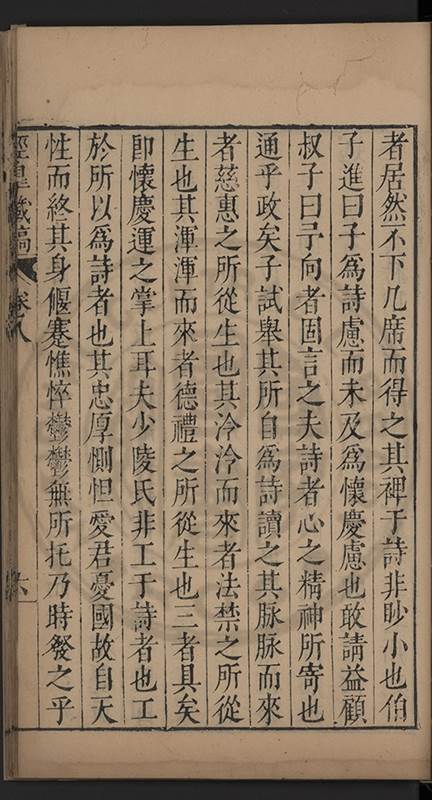 者居然不下几席而得之其裨于詩非眇小也伯
子進曰子為詩慮而未及為懷慶慮也敢請益顧
叔子曰予向者固言之夫詩者心之精神所寄也
通乎政矣子試舉其所自為詩讀之其脉脉而來
者慈惠之所從生也其泠泠而來者法禁之所從
生也其渾渾而來者德禮之所從生也三者具矣
即懷慶運之掌上耳夫少陵氏非工于詩者也工
於所以為詩者也其忠厚惻怛愛君憂國故自天
性而終其身偃蹇憔悴鬱鬱無所托乃時發之乎
涇皋藏稿
卷八
六